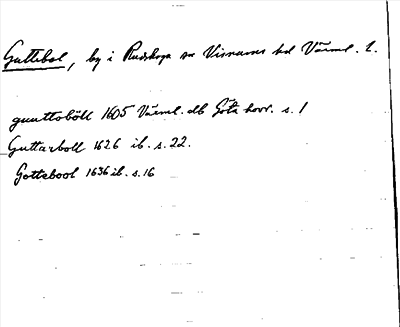 Guttebol, by i Rudskoga sn Visnums hd Värml. l.
guuttoböll 1605 Värml. db Göta hovr. s. 1
Guttarboll 1626 ib. s. 22.
Gottebool 1636 ib. s. 16